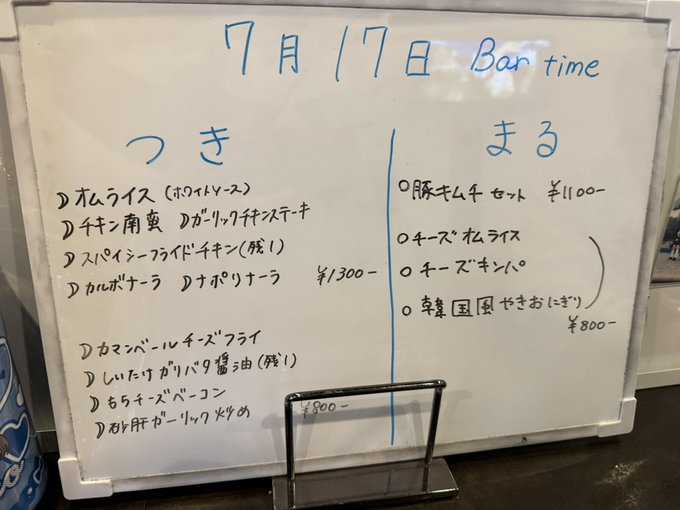 7月17日 Bar time
つき
☽ オムライス (ホワイトソース)
☽ チキン南蛮 ☽ ガーリックチキンステーキ
☽ スパイシーフライドチキン(残1)
☽ カルボナーラ ☽ ナポリナーラ ¥1300-
☽ カマンベールチーズフライ
☽ しいたけガリバタ醤油(残1)
☽ もちチーズベーコン
☽ 砂肝ガーリック炒め ¥800-
まる
○ 豚キムチセット ¥1100-
○ チーズオムライス
○ チーズキンパ
○ 韓国風やきおにぎり
¥800-